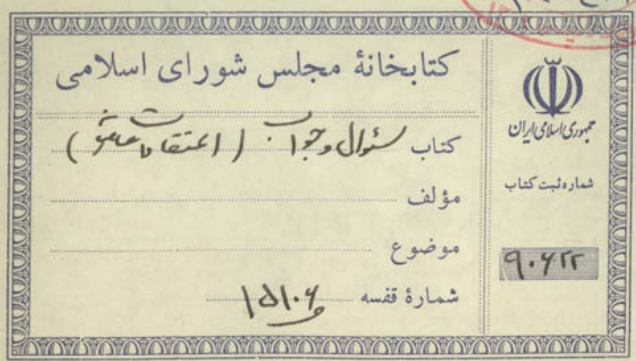 کتابخانهٔ مجلس شورای اسلامی
کتاب سئوال و جواب (اعتقادات
مؤلف
موضوع
شمارهٔ قفسه ۱۵۱۰۶
جمهوری اسلامی ایران
شماره ثبت کتاب
۹۰۶۲۲